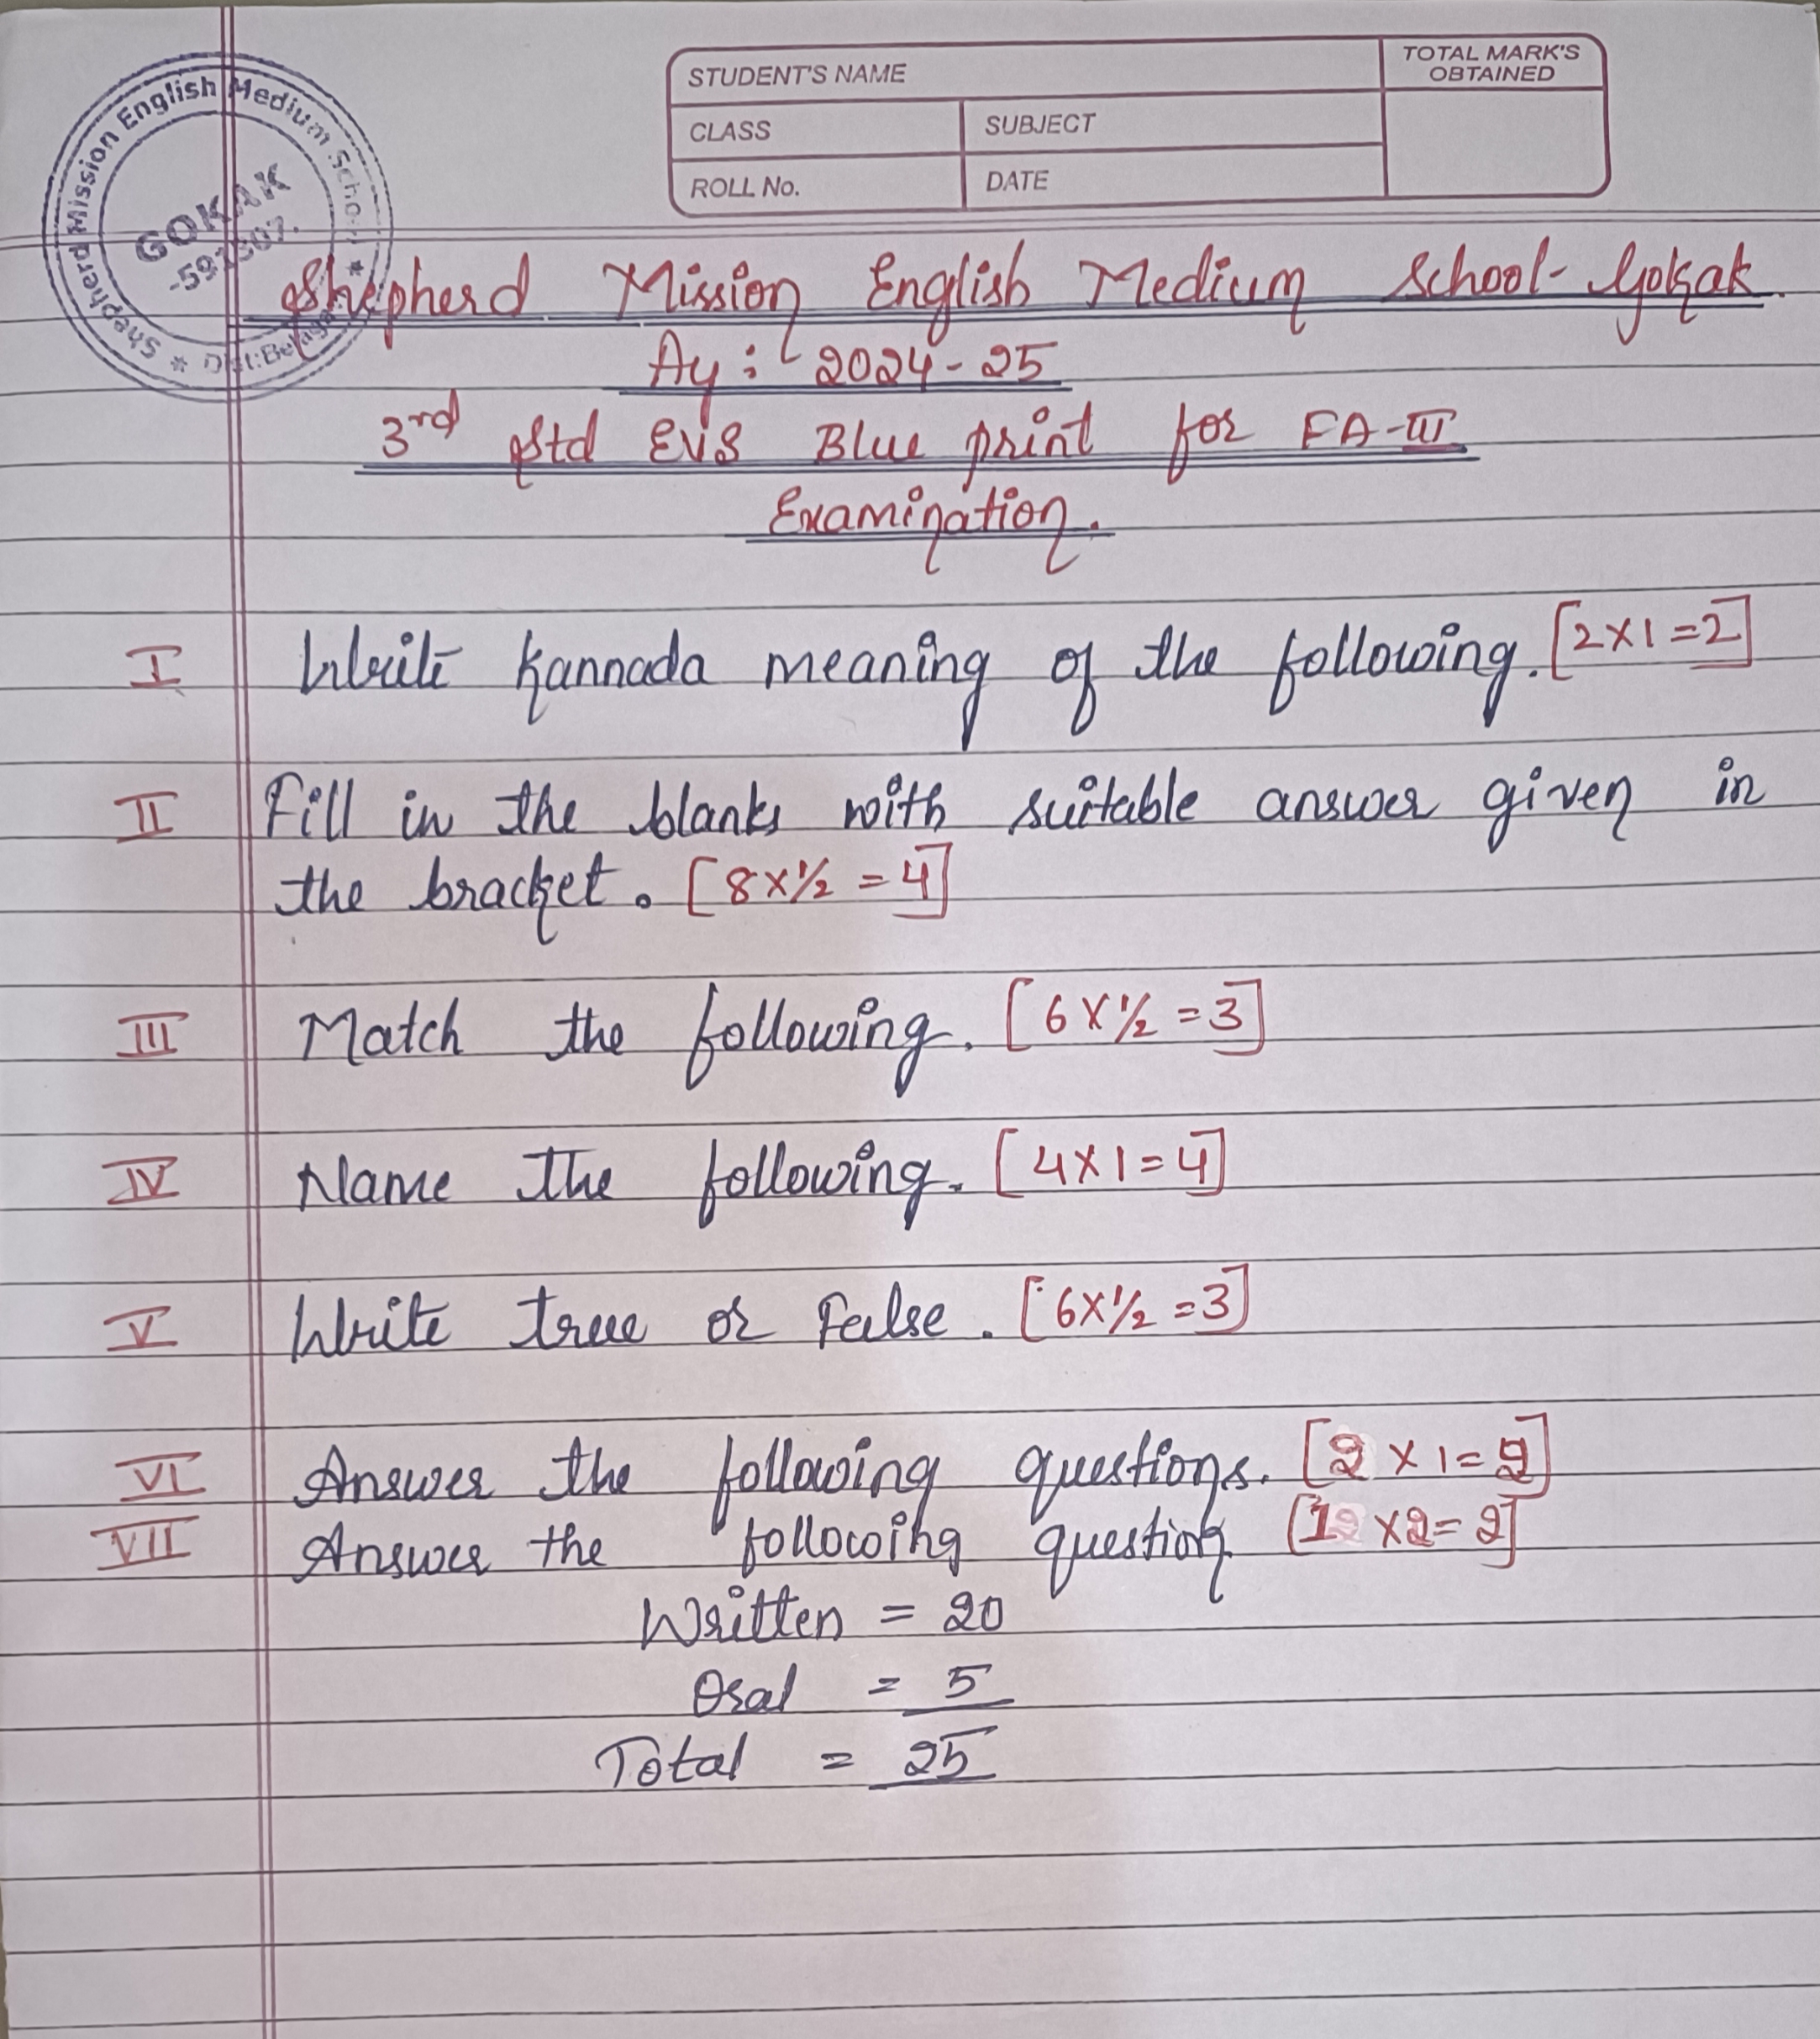 Shepherd Mission English Medium School
GOKAK
* Dist:Belagavi *
STUDENT'S NAME
TOTAL MARK'S OBTAINED
CLASS
SUBJECT
ROLL No.
DATE
Shepherd Mission English Medium School-Gokak
Ay: 2024-25
3rd Std EVS Blue print for FA-III
Examination.
I Write Kannada meaning of the following. [2X1=2]
II Fill in the blanks with suitable answer given in
the bracket. [8X½=4]
III Match the following. [6X½=3]
IV Name The following. [4X1=4]
V Write true or False. [6X½=3]
VI Answer the following questions. [2X1=2]
VII Answer the following question. [1X2=2]
Written = 20
Oral = 5
Total = 25